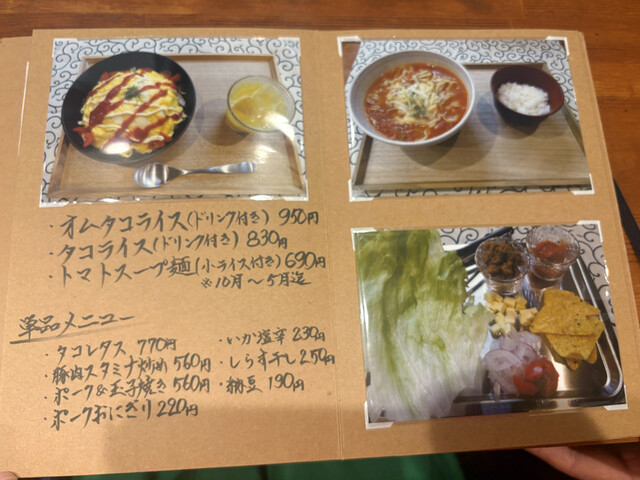 ・オムタコライス(ドリンク付き) 950円
・タコライス(ドリンク付き) 830円
・トマトスープ麺(小ライス付き) 690円
※10月～5月迄
単品メニュー
・タコレタス 770円
・豚肉スタミナ炒め 560円
・ポーク&玉子焼き 560円
・ポークおにぎり 220円
・いか塩辛 230円
・しらす干し 250円
・納豆 190円